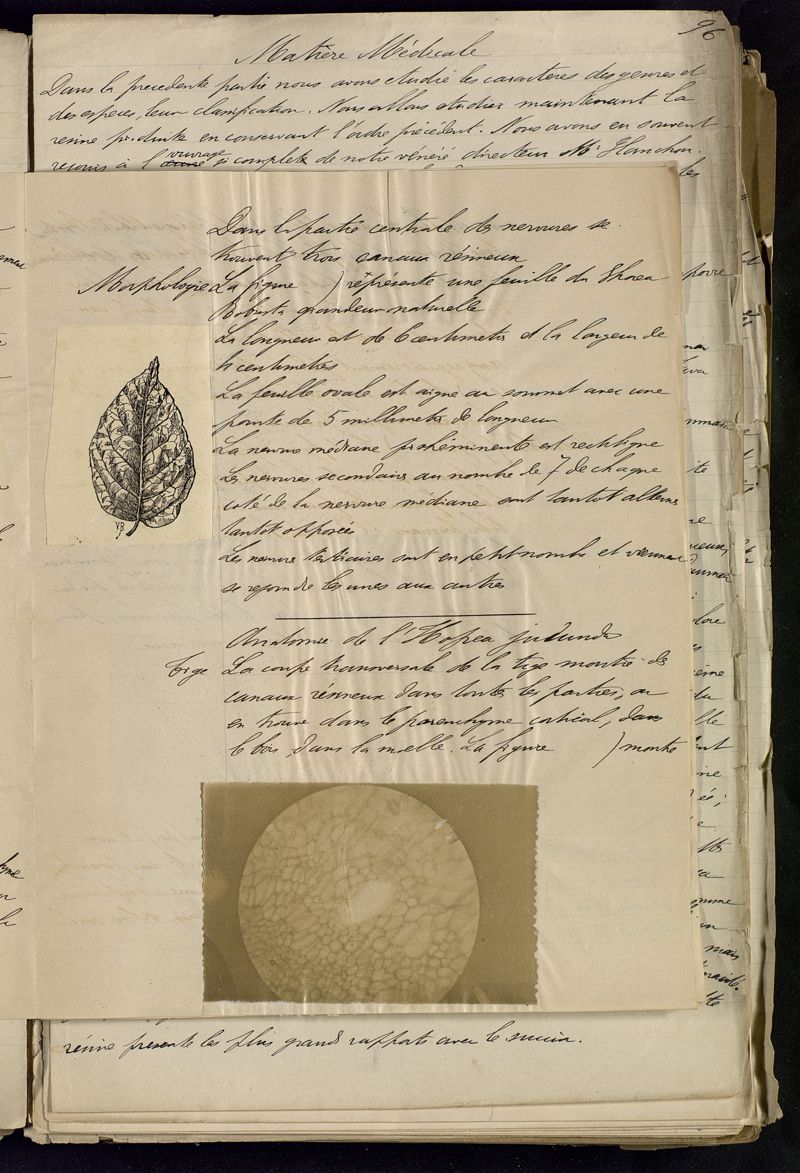 96
Matière Médicale
Dans la precedente partie nous avons etudié les caracteres des genres et
des especes, leur classification. Nous allons etudier maintenant la
resine produite en conservant l'ordre précédent. Nous avons eu souvent
recours à l'ouvrage si complete de notre vénéré directeur Mr Planchon.
les
Dans la partie centrale des nervures se
trouvent trois canaux résineux
Morphologie La figure ) réprésente une feuille du Shorea
Robusta grandeur naturelle
La longueur est de 6 centimetres et la largeur de
4 centimetres
La feuille ovale est aigue au sommet avec une
pointe de 5 millimetres de longueur
La nervure médiane prohéminente est rectiligne
Les nervures secondaires au nombre de 7 de chaque
coté de la nervure médiane sont tantot alternes
tantot opposées
Les nervures tertiaires sont en petit nombre et viennent
se rejoindre les unes aux autres
VB
Anatomie de l'Hopea jucunda
Tige La coupe transversale de la tige montre des
canaux résineux dans toutes les parties, on
en trouve dans le parenchyme cortical, dans
le bois, dans la moelle. La figure ) montre
résine presente les plus grands rapports avec le succin.